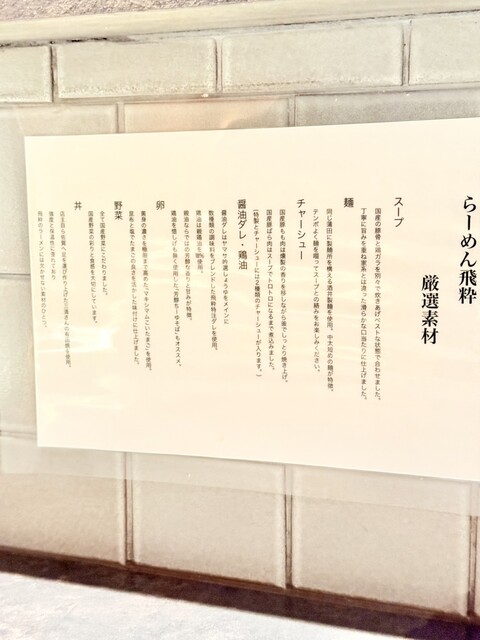 らーめん飛粋
厳選素材
スープ
国産の豚骨と鶏ガラを別々で炊きあげベストな状態で合わせました。
丁寧に旨みを重ね家系とは違った滑らかな口当たりに仕上げました。
麺
同じ蒲田に製麺所を構える酒井製麺を使用。中太短めの麺が特徴。
テンポよく麺を啜ってスープとの絡みをお楽しみください。
チャーシュー
国産豚もも肉は燻製の香りを移しながら釜でしっとり焼き上げ。
国産豚ばら肉はスープでトロトロになるまで煮込みました。
(特製とチャーシューには2種類のチャーシューが入ります。)
醤油ダレ・鶏油
醤油ダレはヤマサ吟選しょうゆをメインに
数種類の調味料をブレンドした飛粋特注ダレを使用。
鶏油は銘鶏油を使用。
銘油ならではの芳醇な香りと甘みが特徴。
鶏油を惜しげも無く使用した"芳醇もーゆそば"もオススメ。
卵
黄身の濃さを極限まで高めた"マキシマムこいたまご"を使用。
昆布と塩でたまごの旨さを活かした味付けに仕上げました。
野菜
全て国産野菜にこだわりました。
国産野菜の彩りと食感を大切にしています。
丼
強度と保温性に優れており
飛粋のラーメンには欠かせない素材のひとつ。